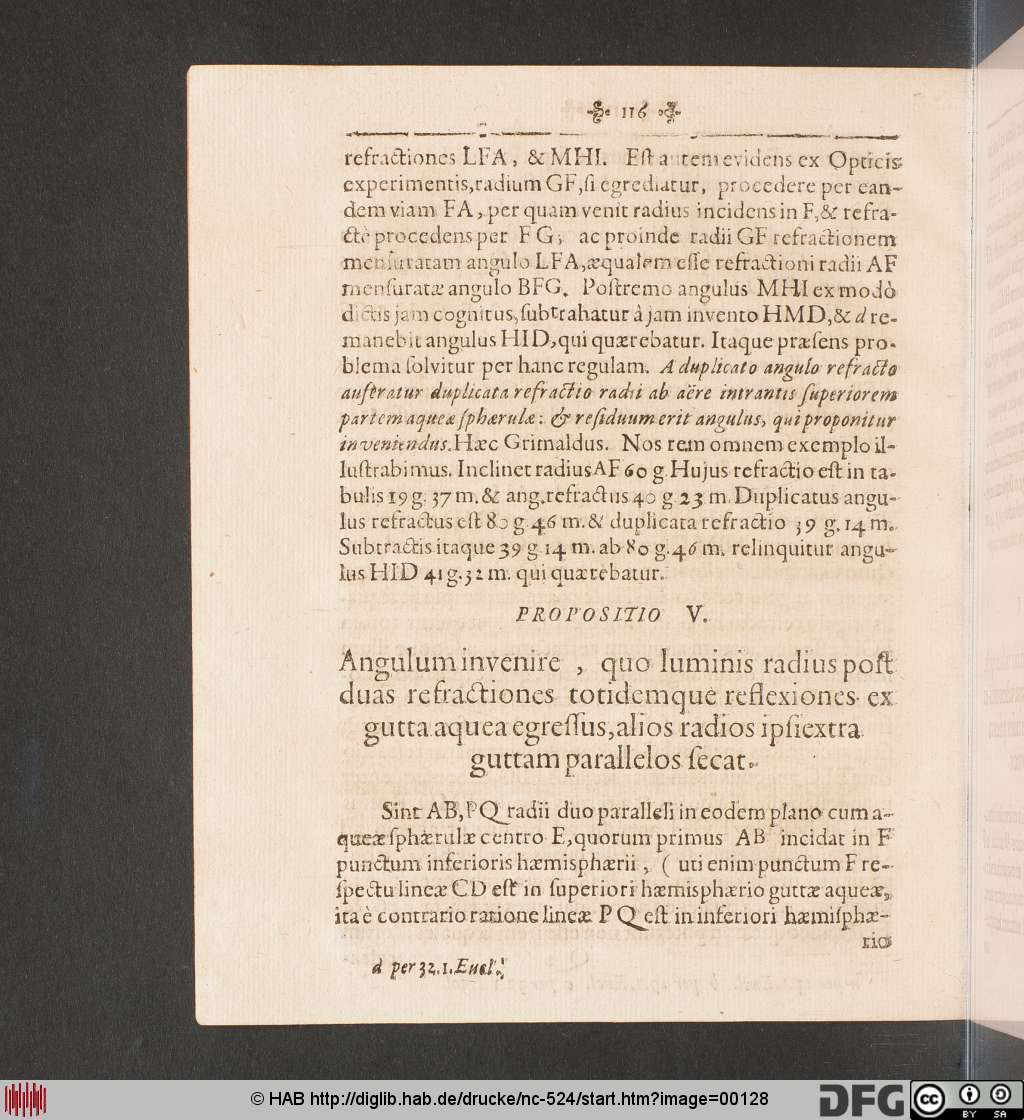 116
refractiones LFA, & MHI. Eſt autem evidens ex Opticis
experimentis, radium GF, ſi egrediatur, procedere per ean-
dem viam FA, per quam venit radius incidens in F, & refra-
ctè procedens per FG; ac proinde radii GF refractionem
menſuratam angulo LFA, æqualem eſſe refractioni radii AF
menſuratæ angulo BFG. Poſtremo angulus MHI ex modò
dictis jam cognitus, ſubtrahatur à jam invento HMD, & d re-
manebit angulus HID, qui quærebatur. Itaque præſens pro-
blema ſolvitur per hanc regulam. A duplicato angulo refracto
auferatur duplicata refractio radii ab aëre intrantis ſuperiorem
partem aqueæ ſphærulæ: & reſiduum erit angulus, qui proponitur
inveniendus. Hæc Grimaldus. Nos rem omnem exemplo il-
luſtrabimus. Inclinet radius AF 60 g. Hujus refractio eſt in ta-
bulis 19 g. 37 m. & ang. refractus 40 g. 23 m. Duplicatus angu-
lus refractus eſt 80 g. 46 m. & duplicata refractio 39 g. 14 m.
Subtractis itaque 39 g. 14 m. ab 80 g. 46 m. relinquitur angu-
lus HID 41 g. 32 m. qui quærebatur.
PROPOSITIO V.
Angulum invenire, quo luminis radius poſt
duas refractiones totidemque reflexiones ex
gutta aquea egreſſus, alios radios ipſi extra
guttam parallelos ſecat.
Sint AB, PQ radii duo paralleli in eodem plano cum a-
queæ ſphærulæ centro E, quorum primus AB incidat in F
punctum inferioris hæmisphærii, (uti enim punctum F re-
ſpectu lineæ CD eſt in ſuperiori hæmisphærio guttæ aqueæ,
ita è contrario ratione lineæ PQ eſt in inferiori hæmiſphæ-
rio
d per 32. 1. Eucl.
© HAB http://diglib.hab.de/drucke/nc-524/start.htm?image=00128
DFG
cc BY SA